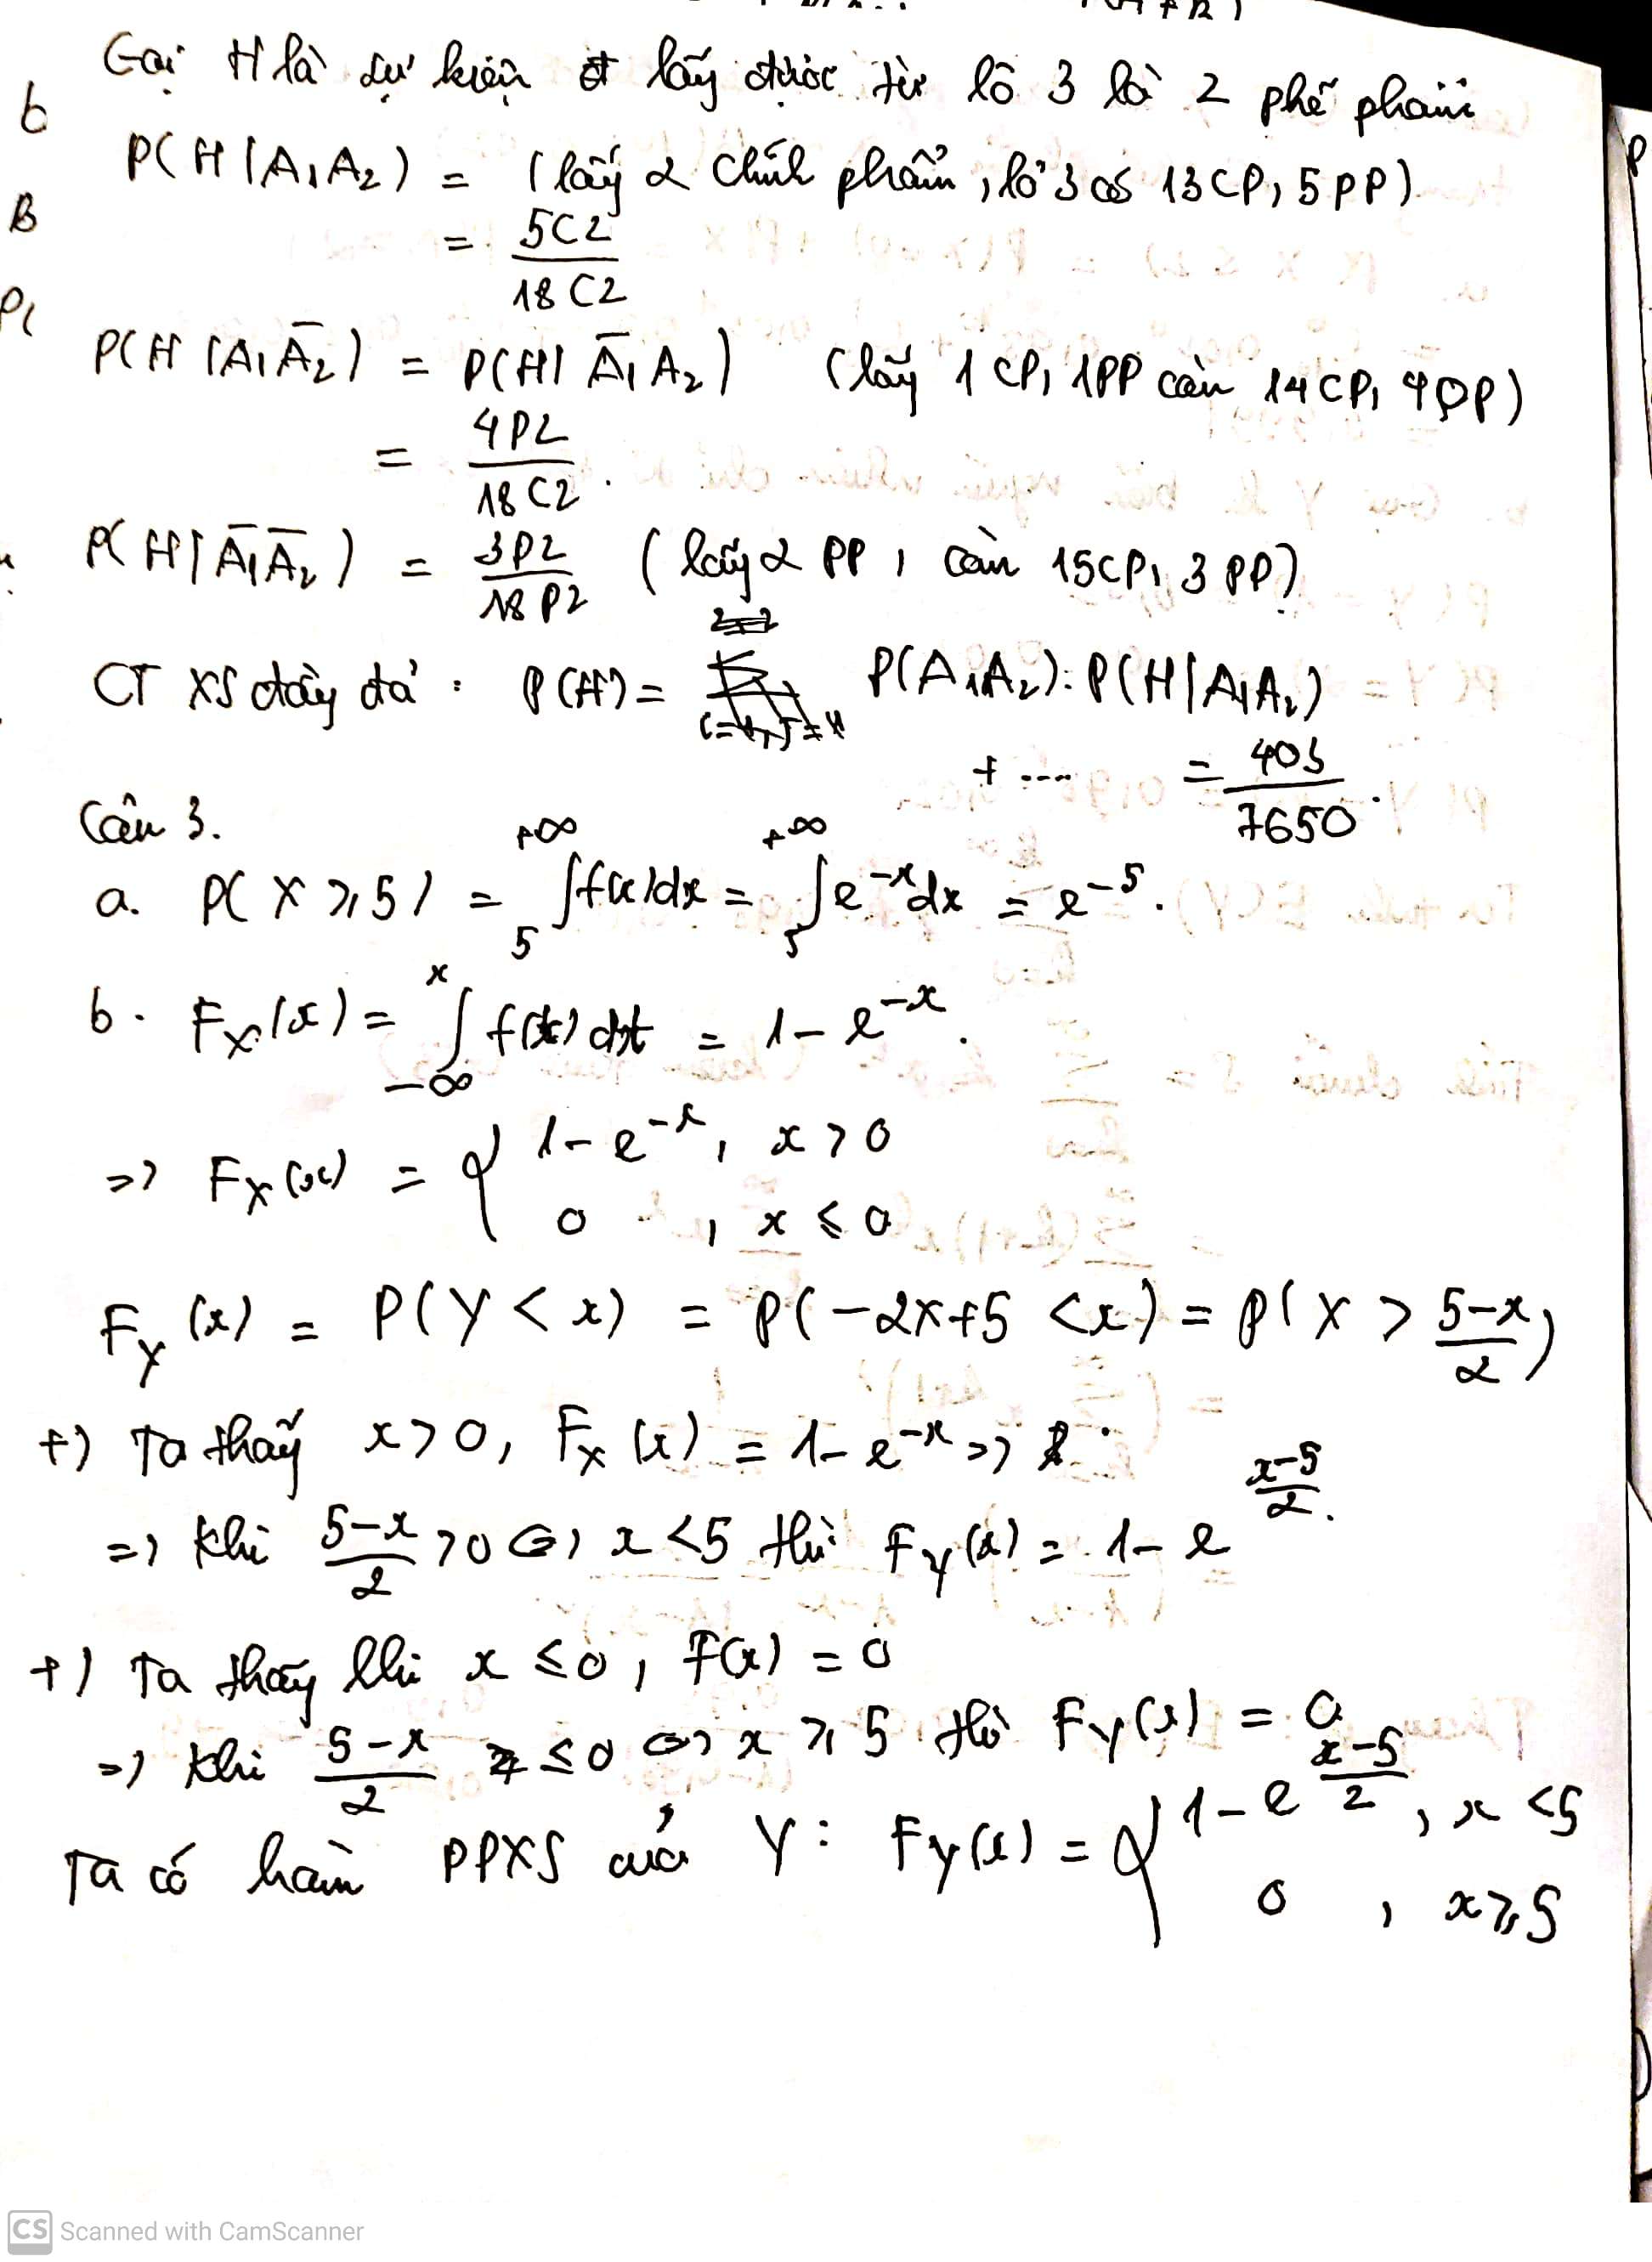 Gọi H là sự kiện lấy được từ lô 3 là 2 phế phẩm
P(H|A₁A₂) = (lấy 2 chính phẩm, lô 3 có 13CP, 5PP)
= 5C2 / 18C2
P(H|A₁Ā₂) = P(H|Ā₁A₂) (lấy 1 CP, 1PP còn 14CP, 4PP)
= 4P2 / 18C2.
P(H|Ā₁Ā₂) = 3P2 / 18P2 (lấy 2 PP, còn 15CP, 3PP)
CT XS đầy đủ : P(H) = P(A₁A₂).P(H|A₁A₂)
+ .... = 403 / 7650.
Câu 3.
a. P(X ≥ 5) = ∫₅^{+∞} f(x)dx = ∫₅^{+∞} e^{-x}dx = e^{-5}.
b. F_X(x) = ∫_{-∞}^{x} f(t)dt = 1 - e^{-x}.
=> F_X(x) = { 1 - e^{-x}, x > 0
0 , x ≤ 0
F_Y(x) = P(Y < x) = P(-2X+5 < x) = P(X > (5-x)/2)
+) Ta thấy x > 0, F_X(x) = 1 - e^{-x} =>
=> Khi (5-x)/2 > 0 <=> x < 5 thì F_Y(x) = 1 - e^{(x-5)/2}.
+) Ta thấy khi x ≤ 0, F(x) = 0
=> Khi (5-x)/2 ≤ 0 <=> x ≥ 5 thì F_Y(x) = 0
Ta có hàm PPXS của Y: F_Y(x) = { 1 - e^{(x-5)/2}, x < 5
0 , x ≥ 5
CS Scanned with CamScanner